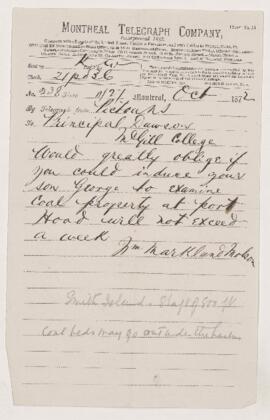 MONTREAL TELEGRAPH COMPANY,
Incorporated 1847.
Check 21 p 36
No. 238
Montreal, Oct 1872
By Telegraph from Pictou NS
To Principal Dawson
McGill College
Would greatly oblige if
you could induce your
son George to examine
coal property at port
Hood will not exceed
a week
Wm Markland Molson
Smith Island
coal beds may go outside the harbor